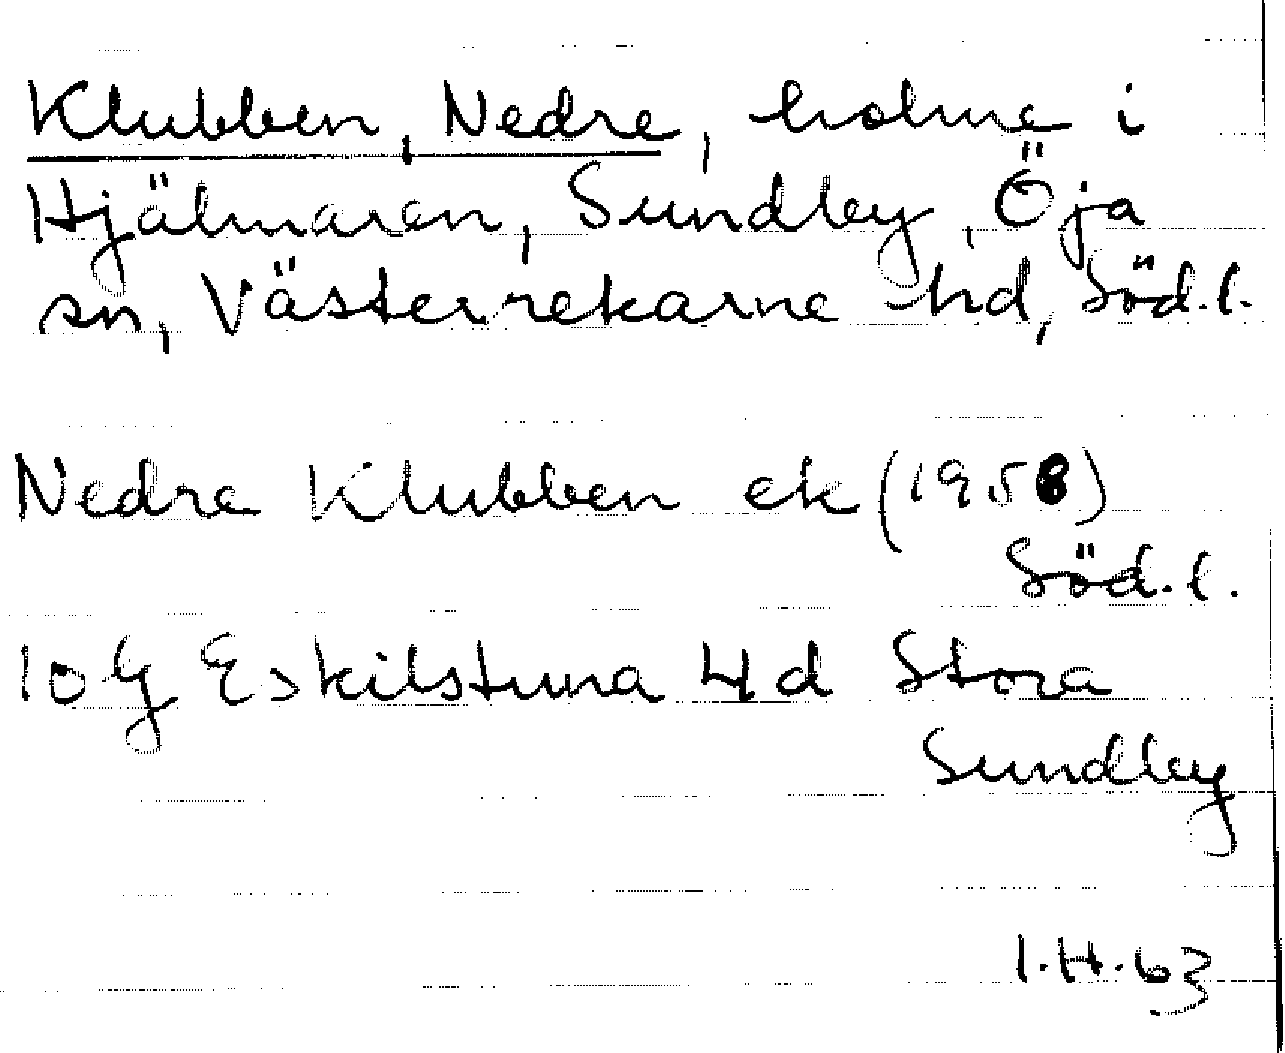 Klubben, Nedre, holme i
Hjälmaren, Sundby, Öja
sn, Västerrekarne hd, Söd.l.
Nedre Klubben ek (1958)
Söd.l.
10G Eskilstuna 4d Stora
Sundby
I.H.63